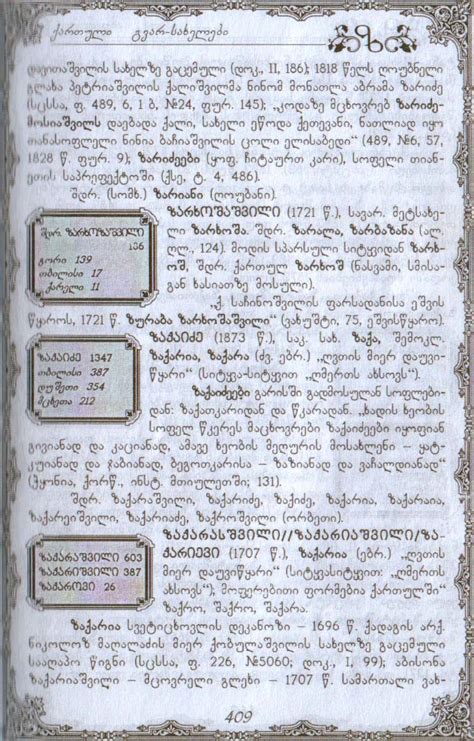 ქართული გვარ-სახელები
დავითაშვილის სახელზე გაცემული (დოკ., II, 186); 1818 წელს ღოუბნელი
გლახა პეტრიაშვილის ქალიშვილმა ნინომ მონათლა აბრამა ზარიძე
(სცსსა, ფ. 489, 6, 1 ბ, №24, ფურ. 145); „კოდაზე მცხოვრებ ზარიძე-
მოსიაშვილს დაებადა ქალი, სახელი ეწოდა ქეთევანი, ნათლიად იყო
თანასოფლელი ნინია ბაჩიაშვილის ცოლი ელისაბედი“ (489, №6, 57,
1828 წ. ფურ. 9); ზარიძეები (ყოფ. ჩიტაურთ კარი), სოფელი თიან-
ეთის საპრეფექტოში (ქსე, ტ. 4, 486).
შდრ. (სომხ.) ზარიანი (ღოუბანი).
შდრ. ზარხოზაშვილი
136
გორი 139
თბილისი 17
ქარელი 11
ზარხოშაშვილი (1721 წ.), საგარ. მეტსახე-
ლი ზარხოშა. შდრ. ზარალა, ზარბაზანა (ალ.
ღლ., 124). მოდის სპარსული სიტყვიდან ზარხ-
ოშ, შდრ. ქართულ ზარხოშ (ნასვამი, სმისა-
გან ხასიათზე მოსული).
„ქ. საჩინოშვილის ფარსადანისა ეშვის
წყაროს, 1721 წ. ზურაბა ზარხოშაშვილი“ (ვახუშტი, 75, ეშვისწყარო).
ზაქაიძე 1347
თბილისი 387
დუშეთი 354
მცხეთა 212
ზაქაიძე (1873 წ.), საკ. სახ. ზაქა, შემოკლ.
ზაქარია, ზაქარა (ძვ. ებრ.) „ღვთის მიერ დაუვი-
წყარი“ (სიტყვა-სიტყვით „ღმერთს ახსოვს“).
ზაქაიძეები გარისში გადმოსულან სოფლები-
დან: ზაქათკარიდან და წკარადან. „ხადის ხეობის
სოფელ წკერეს მაცხოვრები ზაქაიძეები იყოფიან
გივიანად და კაციანად, ამავე ხეობის მეღურის მოსახლენი –
და ჯაბიანად, ბეგოთკარისა – ზაზიანად და ვაჩალდიანად“
ქართწ., ინსტ. მთიულეთში; 131).
შდრ. ზაქარაშვილი, ზაქარიძე, ზაქიძე, ზაქარია, ზაქარაია,
ზაქარეიშვილი, ზაქარიაიძე, ზაქროშვილი (ორბეთი).
ზაქარაშვილი 603
ზაქარიშვილი 387
ზაქაროვი 26
ზაქარასშვილი//ზაქარიაშვილი/ზა-
ქარიევი (1707 წ.), ზაქარია (ებრ.) „ღვთის
მიერ დაუვიწყარი“ (სიტყვასიტყვით: „ღმერთს
ახსოვს“); მოფერებითი ფორმებია ქართულში“
ზაქრო, შაქრო, შაქარა.
ზაქარია სვეტიცხოვლის დეკანოზი – 1696 წ. ქადაგის არქ.
ნიკოლოზ მაღალაძის მიერ ქობულაშვილის სახელზე გაცემული
სააღაპო წიგნი (სცსსა, ფ. 226, №5060; დოკ., I, 99); აბისონა
ზაქარიაშვილი – მცოვრელი გლეხი – 1707 წ. სამართალი ვახ-
409